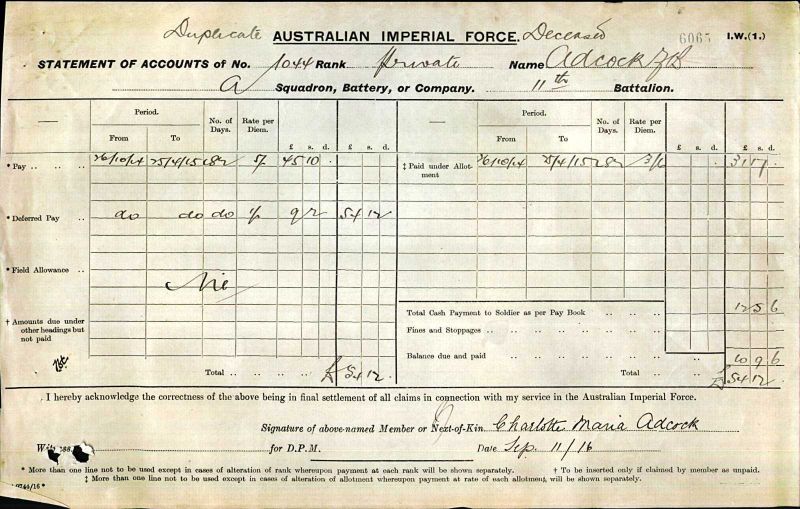 Duplicate AUSTRALIAN IMPERIAL FORCE. Deceased 6065 I.W.(1.)
STATEMENT OF ACCOUNTS of No. 1044 Rank Private Name Adcock F B
A Squadron, Battery, or Company. 11th Battalion.
Period. No. of Days. Rate per Diem. £ s. d. £ s. d. Period. No. of Days. Rate per Diem. £ s. d. £ s. d.
From To From To
* Pay .. .. .. 26/10/14 25/4/15 182 5/- 45 10 . ‡ Paid under Allotment 26/10/14 25/4/15 182 3/6 31 17 .
* Deferred Pay .. do do do 1/- 9 2 54 12
* Field Allowance ..
Nil
Total Cash Payment to Soldier as per Pay Book .. .. .. 12 5 6
† Amounts due under other headings but not paid
Fines and Stoppages .. .. .. .. .. .. ..
Balance due and paid .. .. .. .. 10 9 6
Total .. .. .. .. £ 54 12 Total .. .. .. .. £ 54 12
I hereby acknowledge the correctness of the above being in final settlement of all claims in connection with my service in the Australian Imperial Force.
Signature of above-named Member or Next-of-Kin Charlotte Maria Adcock
Witness for D.P.M. Date Sep. 11/16
* More than one line not to be used except in cases of alteration of rank whereupon payment at each rank will be shown separately. † To be inserted only if claimed by member as unpaid.
‡ More than one line not to be used except in cases of alteration of allotment whereupon payment at rate of each allotment will be shown separately.